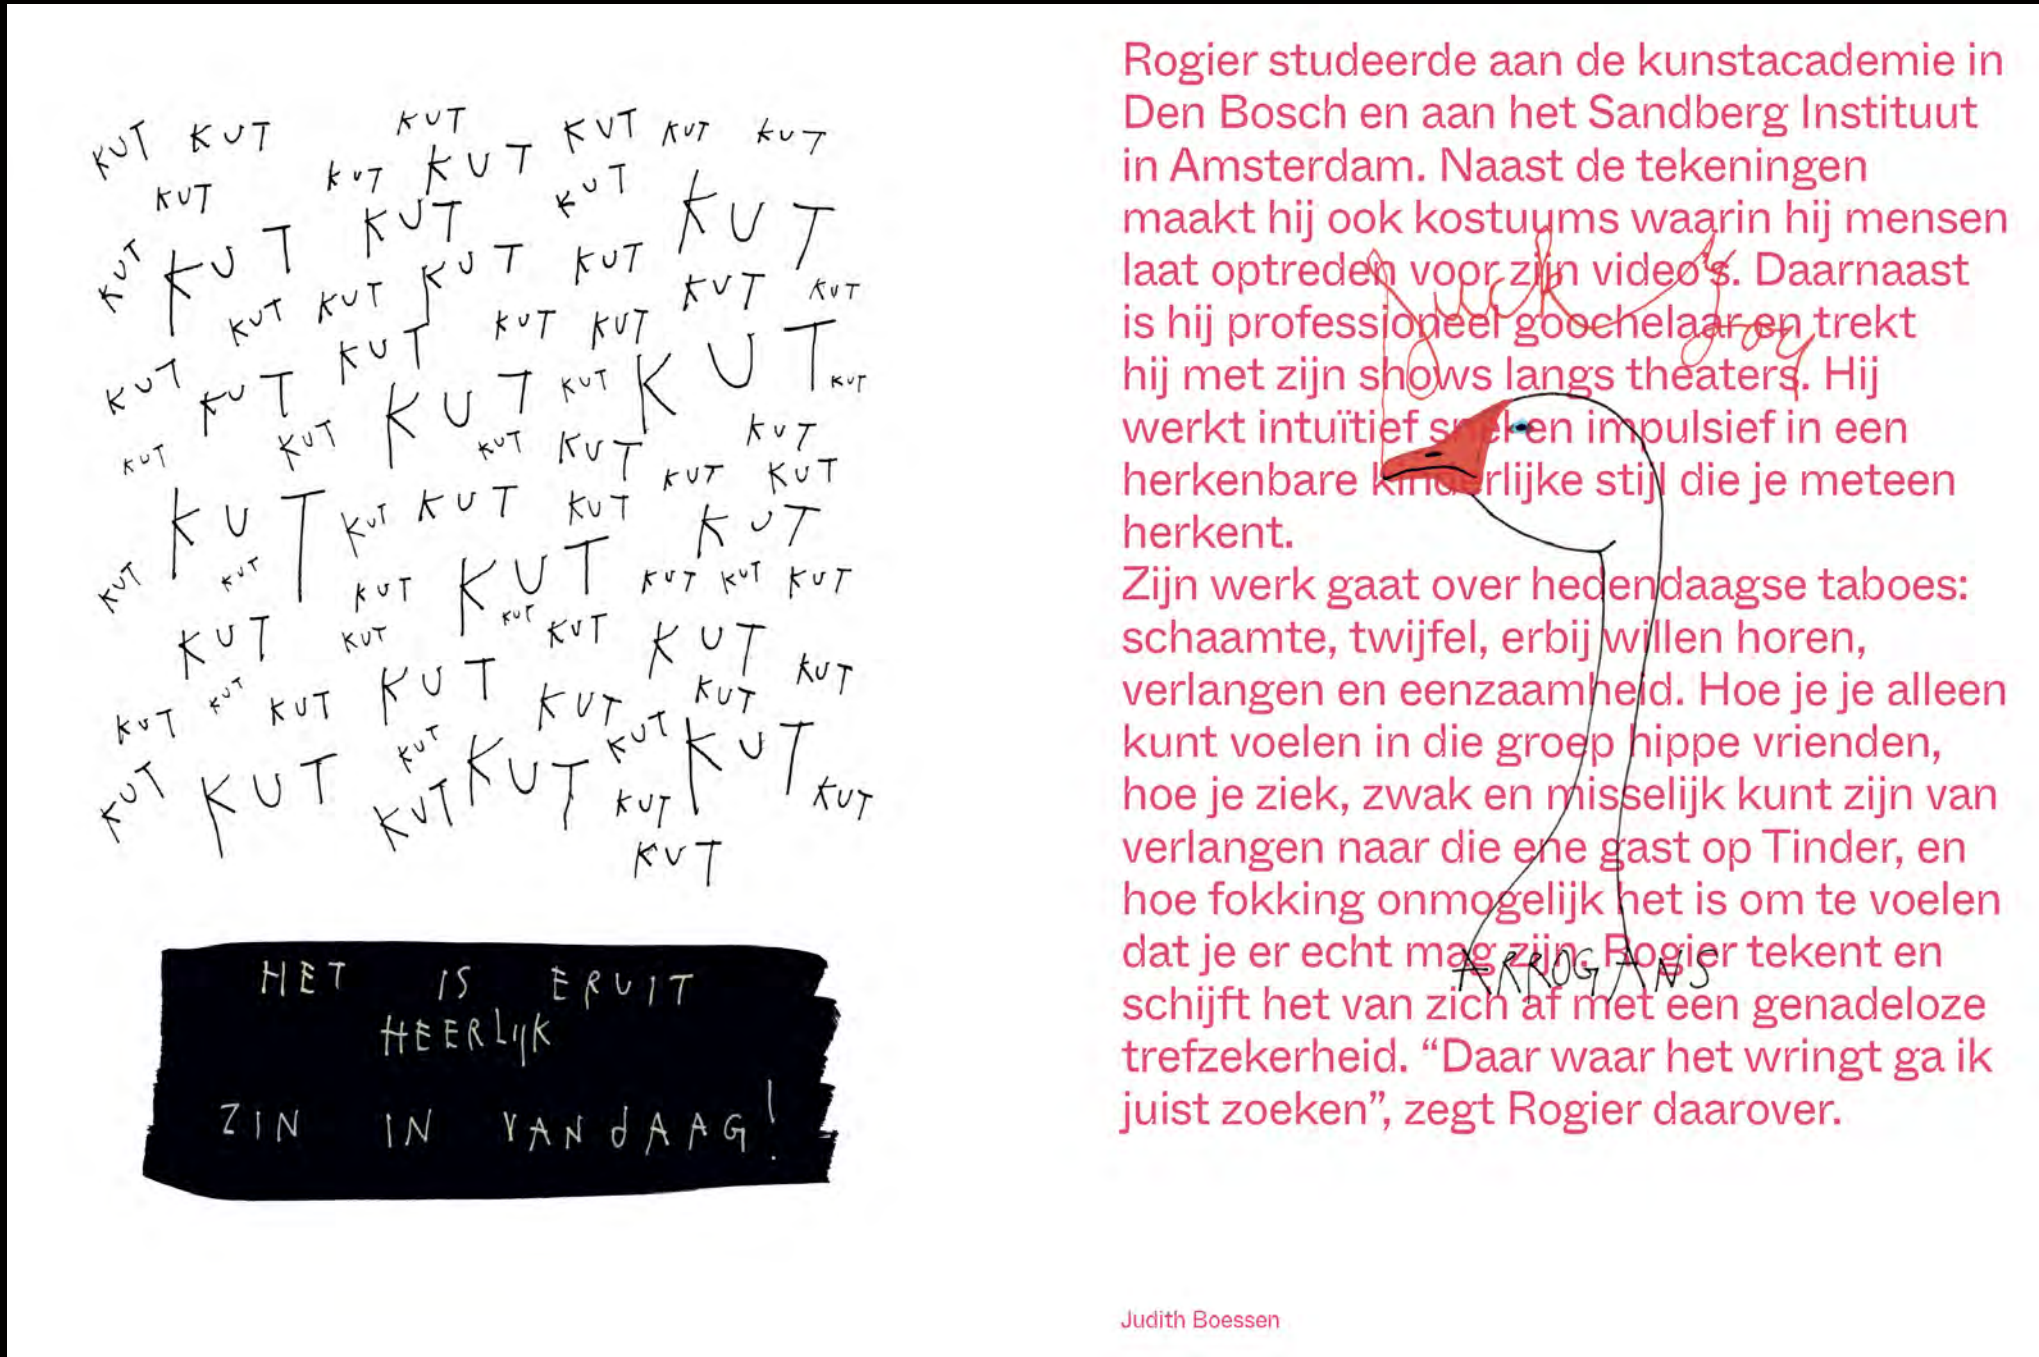 KUT KUT KUT KUT KUT KUT
KUT KUT KUT KUT KUT
KUT KUT KUT KUT KUT
KUT KUT KUT KUT KUT KUT
KUT KUT KUT KUT KUT KUT KUT
KUT KUT KUT KUT KUT
KUT KUT KUT KUT KUT KUT KUT
KUT KUT KUT KUT KUT KUT KUT
KUT KUT KUT KUT KUT
KUT KUT KUT KUT KUT KUT KUT
KUT KUT KUT KUT KUT KUT KUT KUT KUT
KUT
HET IS ERUIT
HEERLIJK
ZIN IN VANDAAG!
Rogier studeerde aan de kunstacademie in
Den Bosch en aan het Sandberg Instituut
in Amsterdam. Naast de tekeningen
maakt hij ook kostuums waarin hij mensen
laat optreden voor zijn video's. Daarnaast
is hij professioneel goochelaar en trekt
hij met zijn shows langs theaters. Hij
werkt intuïtief snel en impulsief in een
herkenbare kinderlijke stijl die je meteen
herkent.
Zijn werk gaat over hedendaagse taboes:
schaamte, twijfel, erbij willen horen,
verlangen en eenzaamheid. Hoe je je alleen
kunt voelen in die groep hippe vrienden,
hoe je ziek, zwak en misselijk kunt zijn van
verlangen naar die ene gast op Tinder, en
hoe fokking onmogelijk het is om te voelen
dat je er echt mag zijn. Rogier tekent en
schijft het van zich af met een genadeloze
trefzekerheid. “Daar waar het wringt ga ik
juist zoeken”, zegt Rogier daarover.
ARROGANS
Judith Boessen